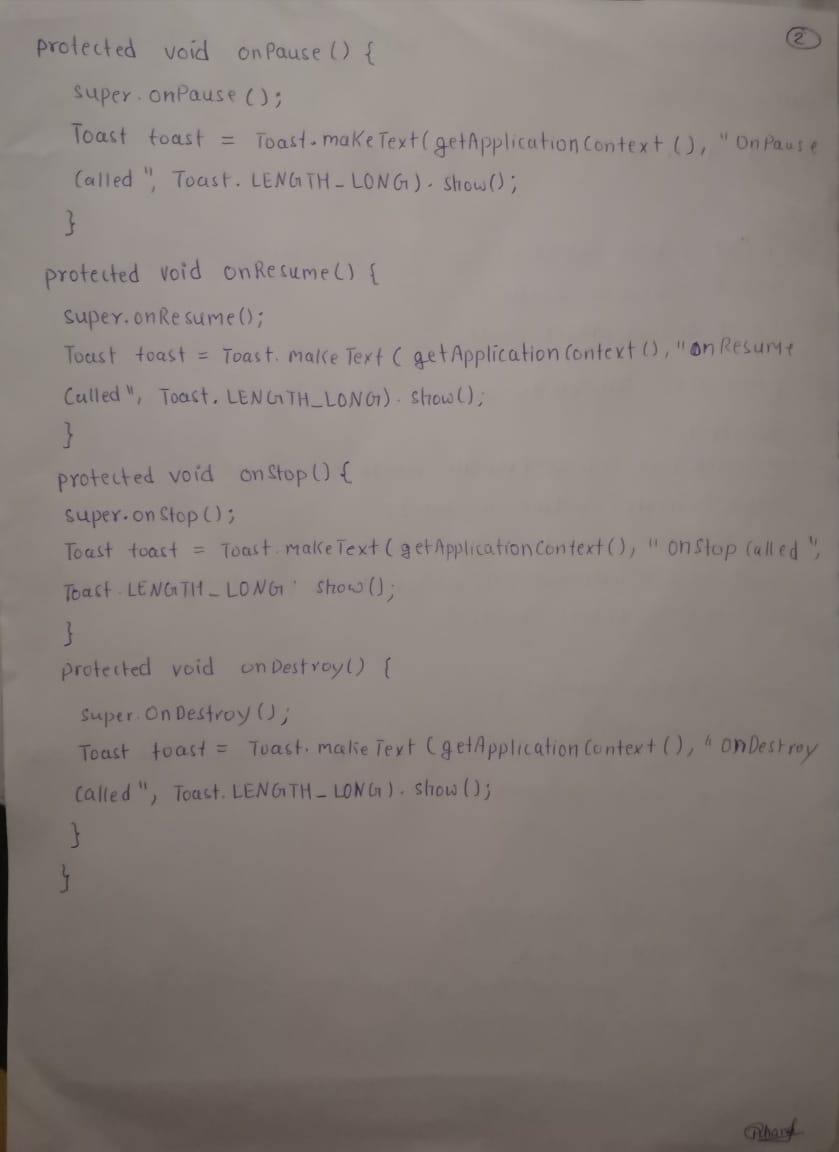 2
protected void onPause () {
super.onPause ();
Toast toast = Toast.makeText(getApplicationContext (), "OnPause
Called", Toast. LENGTH_LONG). show();
}
protected void onResume() {
super.onResume();
Toast toast = Toast. makeText ( getApplicationContext (), "onResume
Called", Toast. LENGTH_LONG). show();
}
protected void onStop() {
super.onStop();
Toast toast = Toast.makeText ( getApplicationContext(), "onStop Called",
Toast. LENGTH_LONG. show();
}
protected void onDestroy() {
super.OnDestroy();
Toast toast = Toast.makeText (getApplicationContext (), "onDestroy
Called", Toast. LENGTH_LONG). show();
}
}